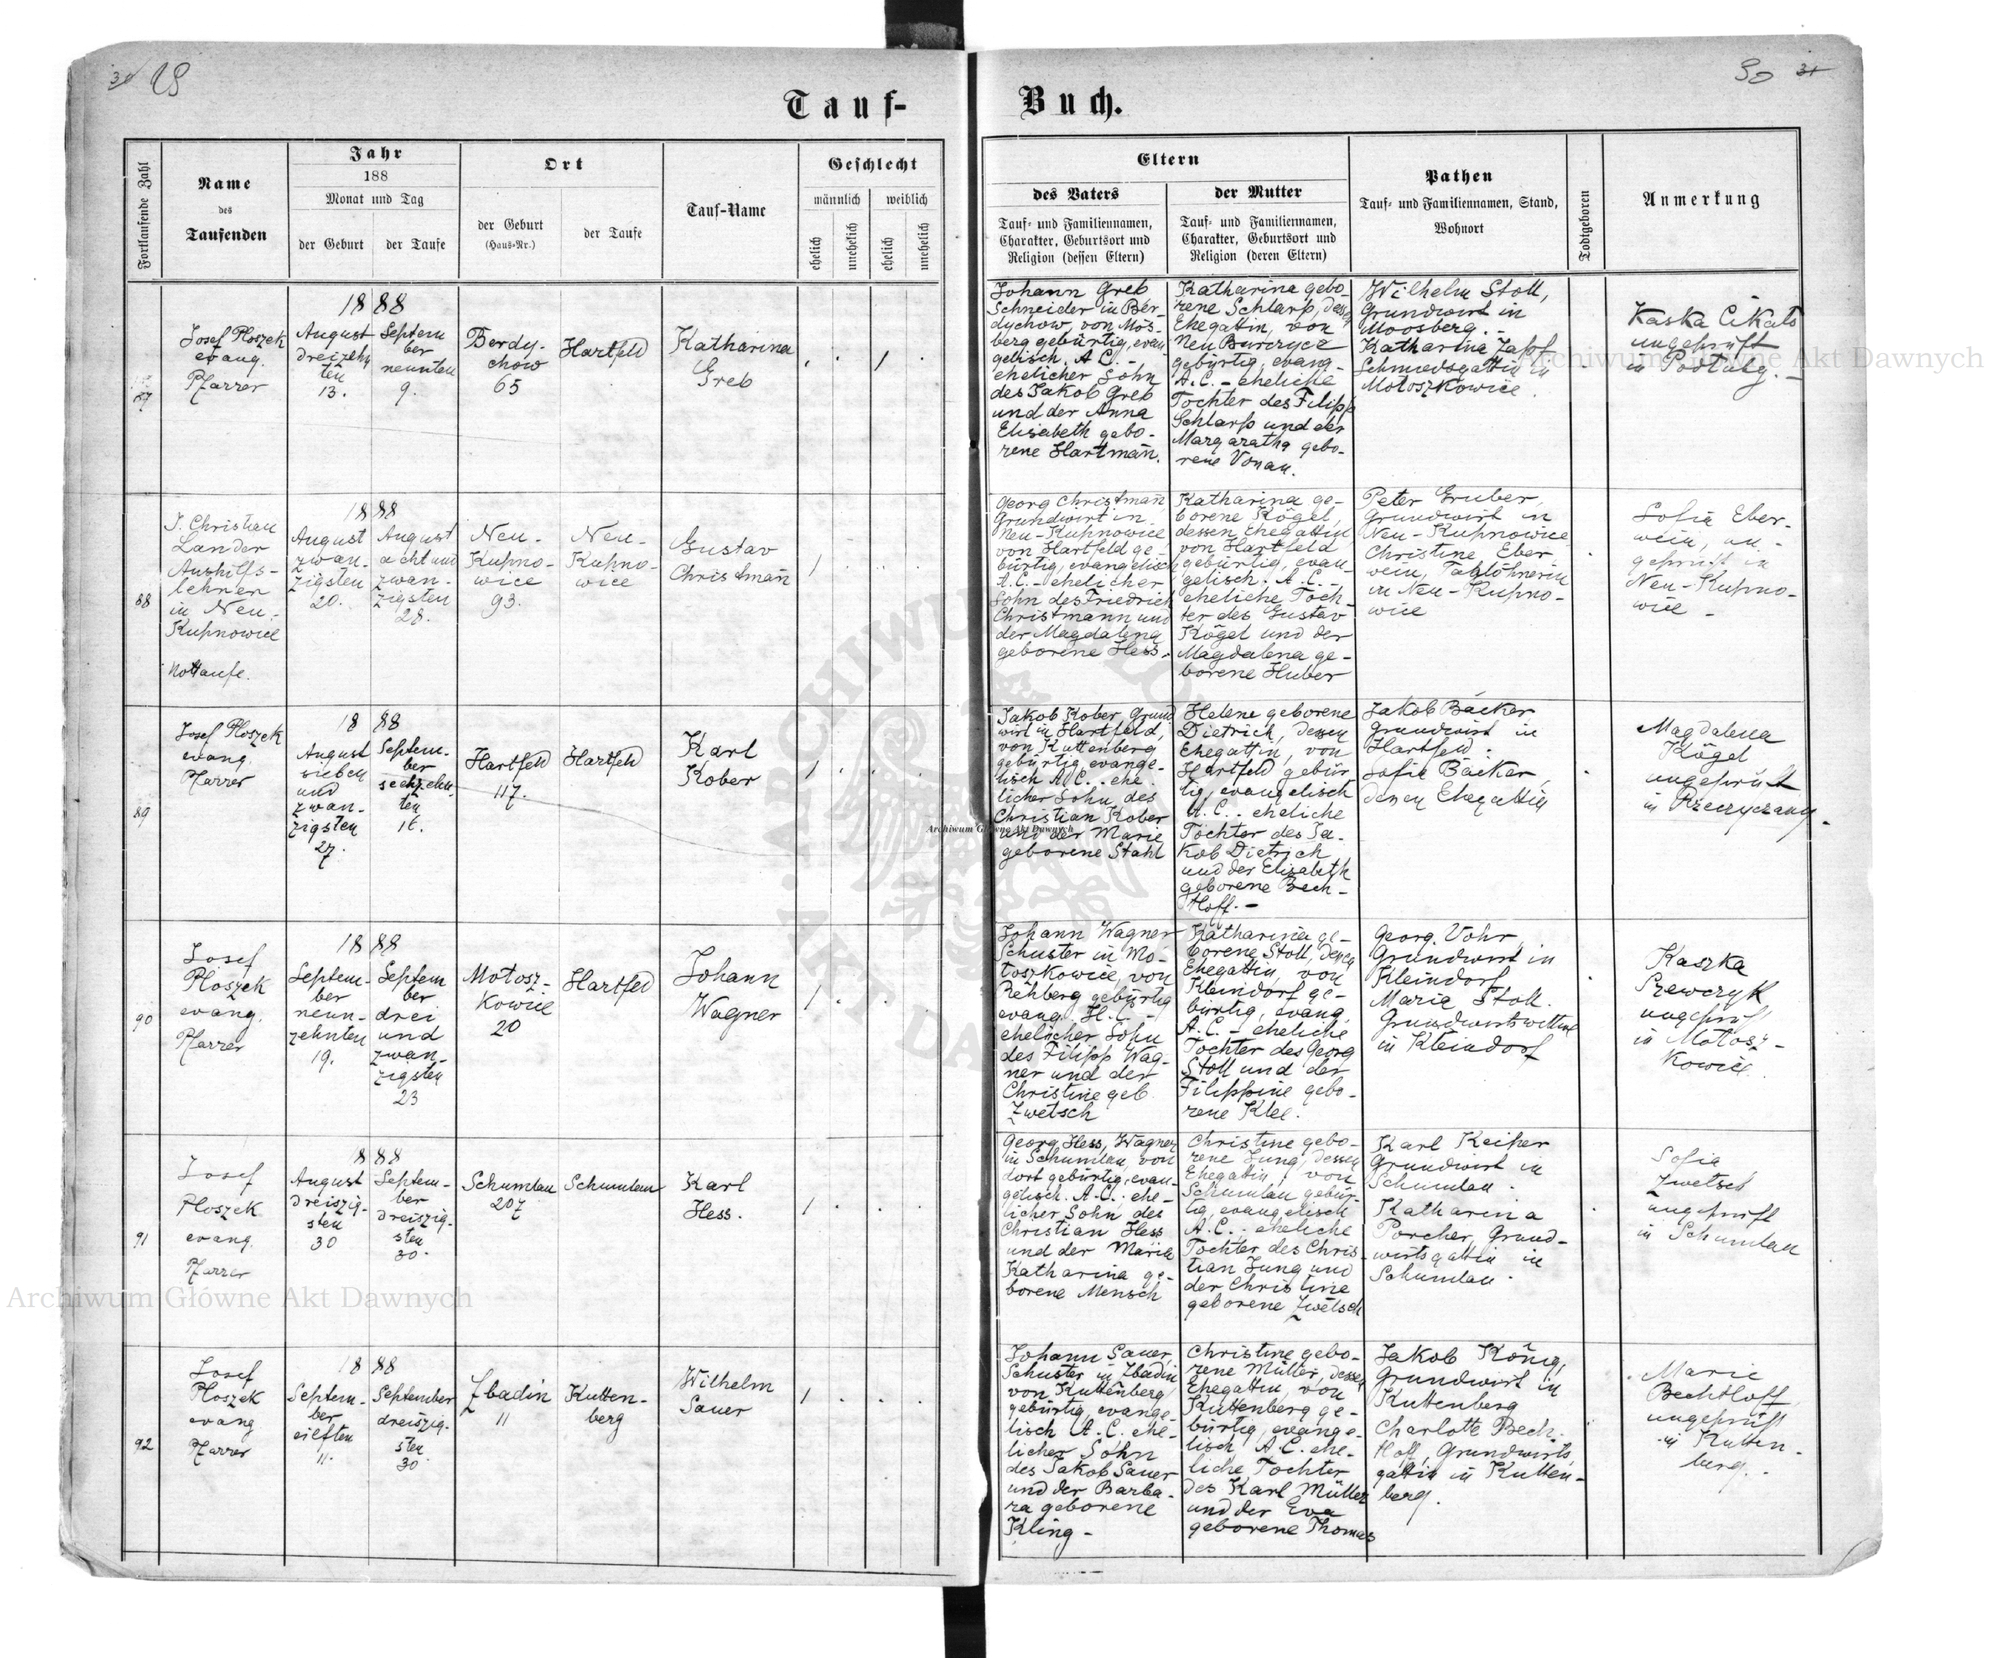 28
30 31
Tauf-
Buch.
Fortlaufende Zahl
Name
des
Taufenden
Jahr
188
Monat und Tag
der Geburt
der Taufe
Ort
der Geburt
(Haus-Nr.)
der Taufe
Tauf-Name
Geschlecht
männlich
weiblich
ehelich
unehelich
ehelich
unehelich
Eltern
des Vaters
Tauf- und Familiennamen,
Charakter, Geburtsort und
Religion (dessen Eltern)
der Mutter
Tauf- und Familiennamen,
Charakter, Geburtsort und
Religion (deren Eltern)
Pathen
Tauf- und Familiennamen, Stand,
Wohnort
Todtgeboren
Anmerkung
87
Josef Ploszek
evang.
Pfarrer
1888
August
dreizehn
ten
13.
Septem
ber
neunten
9.
Berdy-
chow
65
Hartfeld
Katharina
Greb
Johann Greb
Schneider in Ber-
dychow, von Mos-
berg gebürtig, evan
gelisch, A.C. -
ehelicher Sohn
des Jakob Greb
und der Anna
Elisabeth gebo-
rene Hartmañ.
Katharina gebo-
rene Schlarp, dessen
Ehegattin, von
Neu Burczyce
gebürtig, evang-
A.C. - eheliche
Tochter des Filipp
Schlarp und der
Margaratha gebo-
rene Vonau.
Wilhelm Stoll,
Grundwirt in
Moosberg. -
Katharina Zapf
Schmiedsgattin in
Motoszkowice.
Kaska Cikats
ungeprüft
in Podluby. -
88
J. Christian
Lander
Aushilfs-
lehrer
in Neu-
Kupnowice
Nottaufe.
1888
August
zwan-
zigsten
20.
August
acht und
zwan-
zigsten
28.
Neu-
Kupno-
wice
93.
Neu-
Kupno-
wice
Gustav
Christmañ
Georg Christmañ
Grundwirt in
Neu-Kupnowice
von Hartfeld ge-
bürtig, evangelisch
A.C. - ehelicher
Sohn des Friedrich
Christmann und
der Magdalena
geborene Hess.
Katharina ge-
borene Kögel,
dessen Ehegattin
von Hartfeld
gebürtig, evan-
gelisch. A.C. -
eheliche Toch-
ter des Gustav
Kögel und der
Magdalena ge-
borene Huber
Peter Gruber,
Grundwirt in
Neu-Kupnowice
Christine Eber
wein, Taglöhnerin
in Neu-Kupno-
wice
Sofia Eber-
wein, un-
geprüft in
Neu-Kupno-
wice -
89
Josef Ploszek
evang.
Pfarrer
1888
August
sieben
und
zwan-
zigsten
27.
Septem-
ber
sechzehn
ten
16.
Hartfeld
117.
Hartfeld
Karl
Kober
Jakob Kober, Grund
wirt in Hartfeld,
von Kuttenberg
gebürtig, evange-
lisch A.C. - ehe-
licher Sohn des
Christian Kober
und der Marie
geborene Stahl
Helene geborene
Dietrich, dessen
Ehegattin, von
Hartfeld gebür
tig, evangelisch
A.C. - eheliche
Tochter des Ja-
kob Dietrich
und der Elisabeth
geborene Bech-
thoff. -
Jakob Bäcker
Grundwirt in
Hartfeld.
Sofie Bäcker,
dessen Ehegattin
Magdalena
Kögel
ungeprüft
in Rzeczyczany.
90
Josef
Ploszek
evang.
Pfarrer
1888
Septem-
ber
neun-
zehnten
19.
Septem
ber
drei
und
zwan-
zigsten
23
Motosz-
kowice
20
Hartfeld
Johann
Wagner
Johann Wagner
Schuster in Mo-
toszkowice, von
Rehberg gebürtig
evang. H.C. -
ehelicher Sohn
des Filipp Wag-
ner und der
Christine geb.
Zwetsch
Katharina ge-
borene Stoll, dessen
Ehegattin, von
Kleindorf ge-
bürtig, evang.
A.C. - eheliche
Tochter des Georg
Stoll und der
Filippine gebo-
rene Klee.
Georg Vohr,
Grundwirt in
Kleindorf
Maria Stoll.
Grundwirtswittwe
in Kleindorf
Kaszka
Szewczyk
ungeprüft
in Motosz-
kowice.
91
Josef
Ploszek
evang.
Pfarrer
1888
August
dreiszig-
sten
30
Septem-
ber
dreiszig-
sten
30.
Schumlau
207
Schumlau
Karl
Hess.
Georg Hess, Wagner
in Schumlau, von
dort gebürtig, evan-
gelisch. A.C. ehe-
licher Sohn des
Christian Hess
und der Maria
Katharina ge-
borene Mensch
Christine gebo-
rene Jung, dessen
Ehegattin, von
Schumlau gebür-
tig, evangelisch
A.C. - eheliche
Tochter des Chris-
tian Jung und
der Christine
geborene Zwetsch
Karl Keiper
Grundwirt in
Schumlau.
Katharina
Porcher, Grund-
wirtsgattin in
Schumlau.
Sofia
Zwetsch
ungeprüft
in Schumlau
92
Josef
Ploszek
evang
Pfarrer
1888
Septem-
ber
eilften
11.
September
dreiszig-
sten
30.
Zbadin
11
Kutten-
berg
Wilhelm
Sauer
Johann Sauer,
Schuster in Zbadin
von Kuttenberg
gebürtig, evange-
lisch A.C. ehe-
licher Sohn
des Jakob Sauer
und der Barba-
ra geborene
Kling -
Christine gebo-
rene Müller, dessen
Ehegattin, von
Kuttenberg ge-
bürtig, evange-
lisch A.C. ehe-
liche Tochter
des Karl Müller
und der Eva
geborene Thomas
Jakob König,
Grundwirt in
Kuttenberg
Charlotte Bech-
thoff, Grundwirts
gattin in Kutten-
berg.
Marie
Bechthoff,
ungeprüft
in Kutten-
berg. -
Archiwum Główne Akt Dawnych
Archiwum Główne Akt Dawnych
Archiwum Główne Akt Dawnych